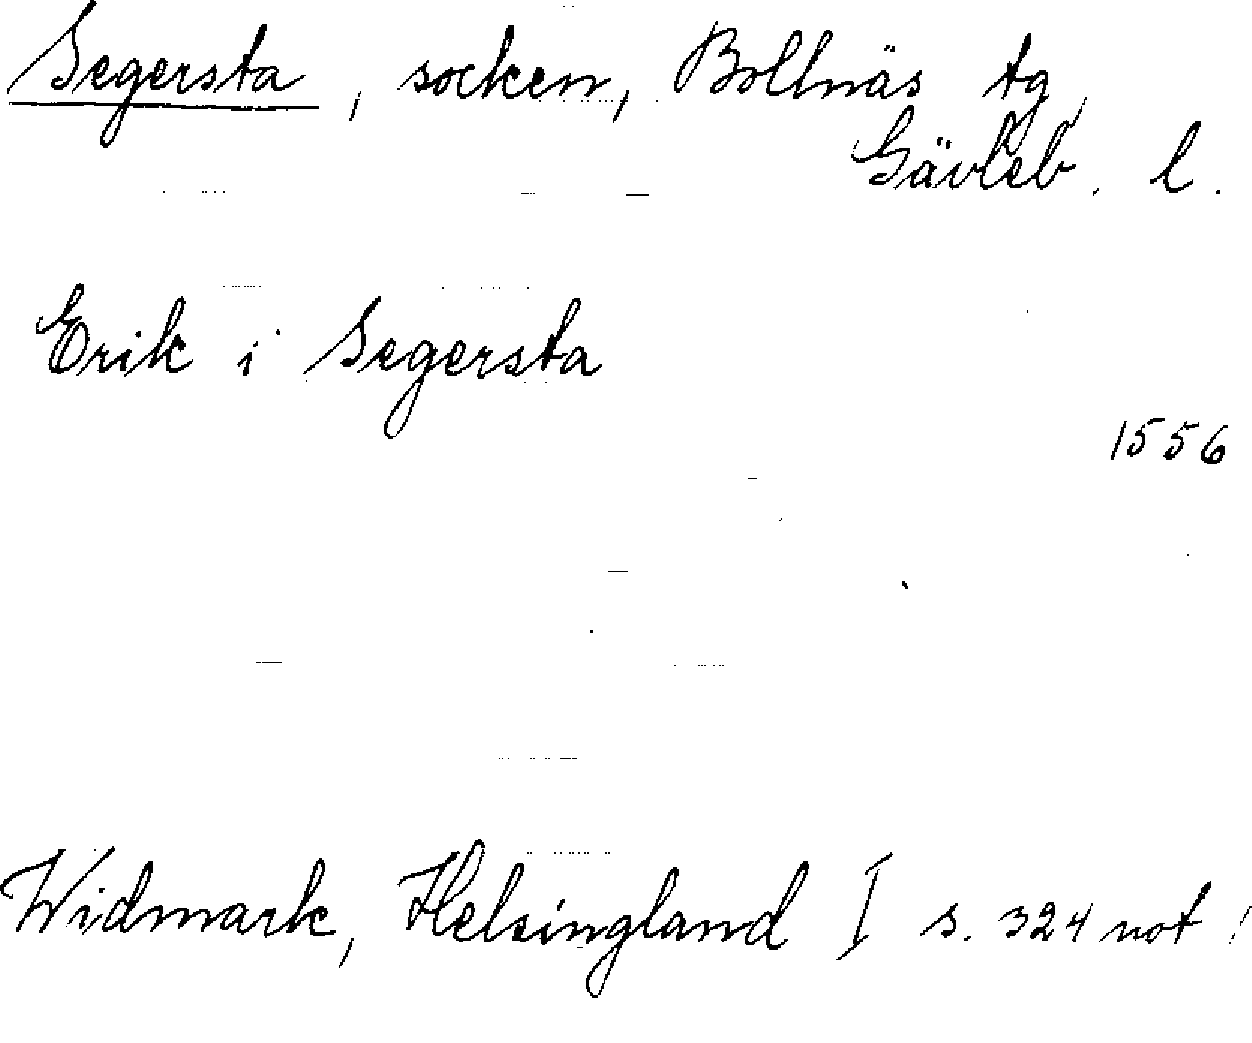 Segersta, socken, Bollnäs tg,
Gävleb. l.
Erik i Segersta
1556
Widmark, Helsingland I s. 324 not